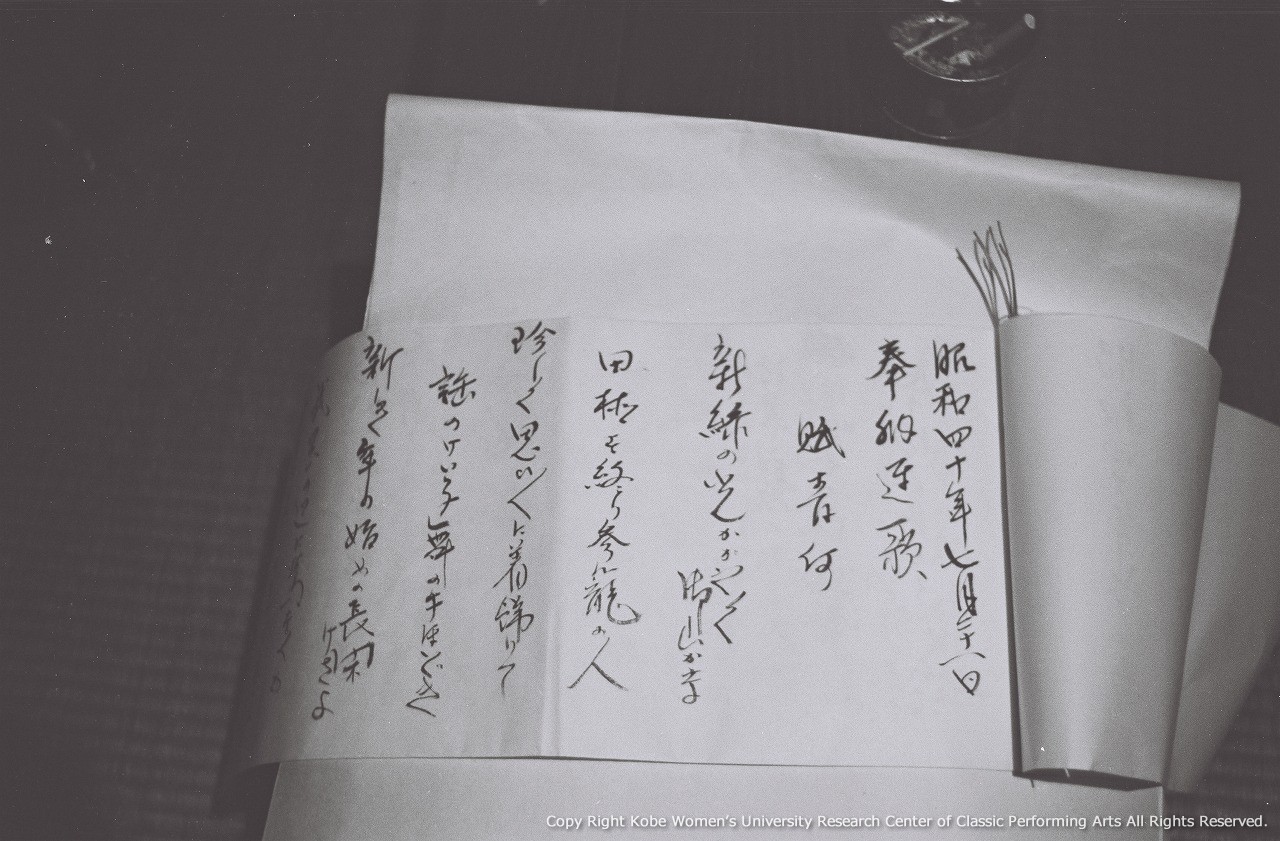 昭和四十年七月二十六日
奉納連歌
賦青何
新緑の光かがやく
御山かな
田植を終り参籠の人
珍しく思ひ〱に着飾りて
謡のけいこ舞の手ほどき
新しき年の始めの長閑
けさよ
Copy Right Kobe Women's University Research Center of Classic Performing Arts All Rights Reserved.